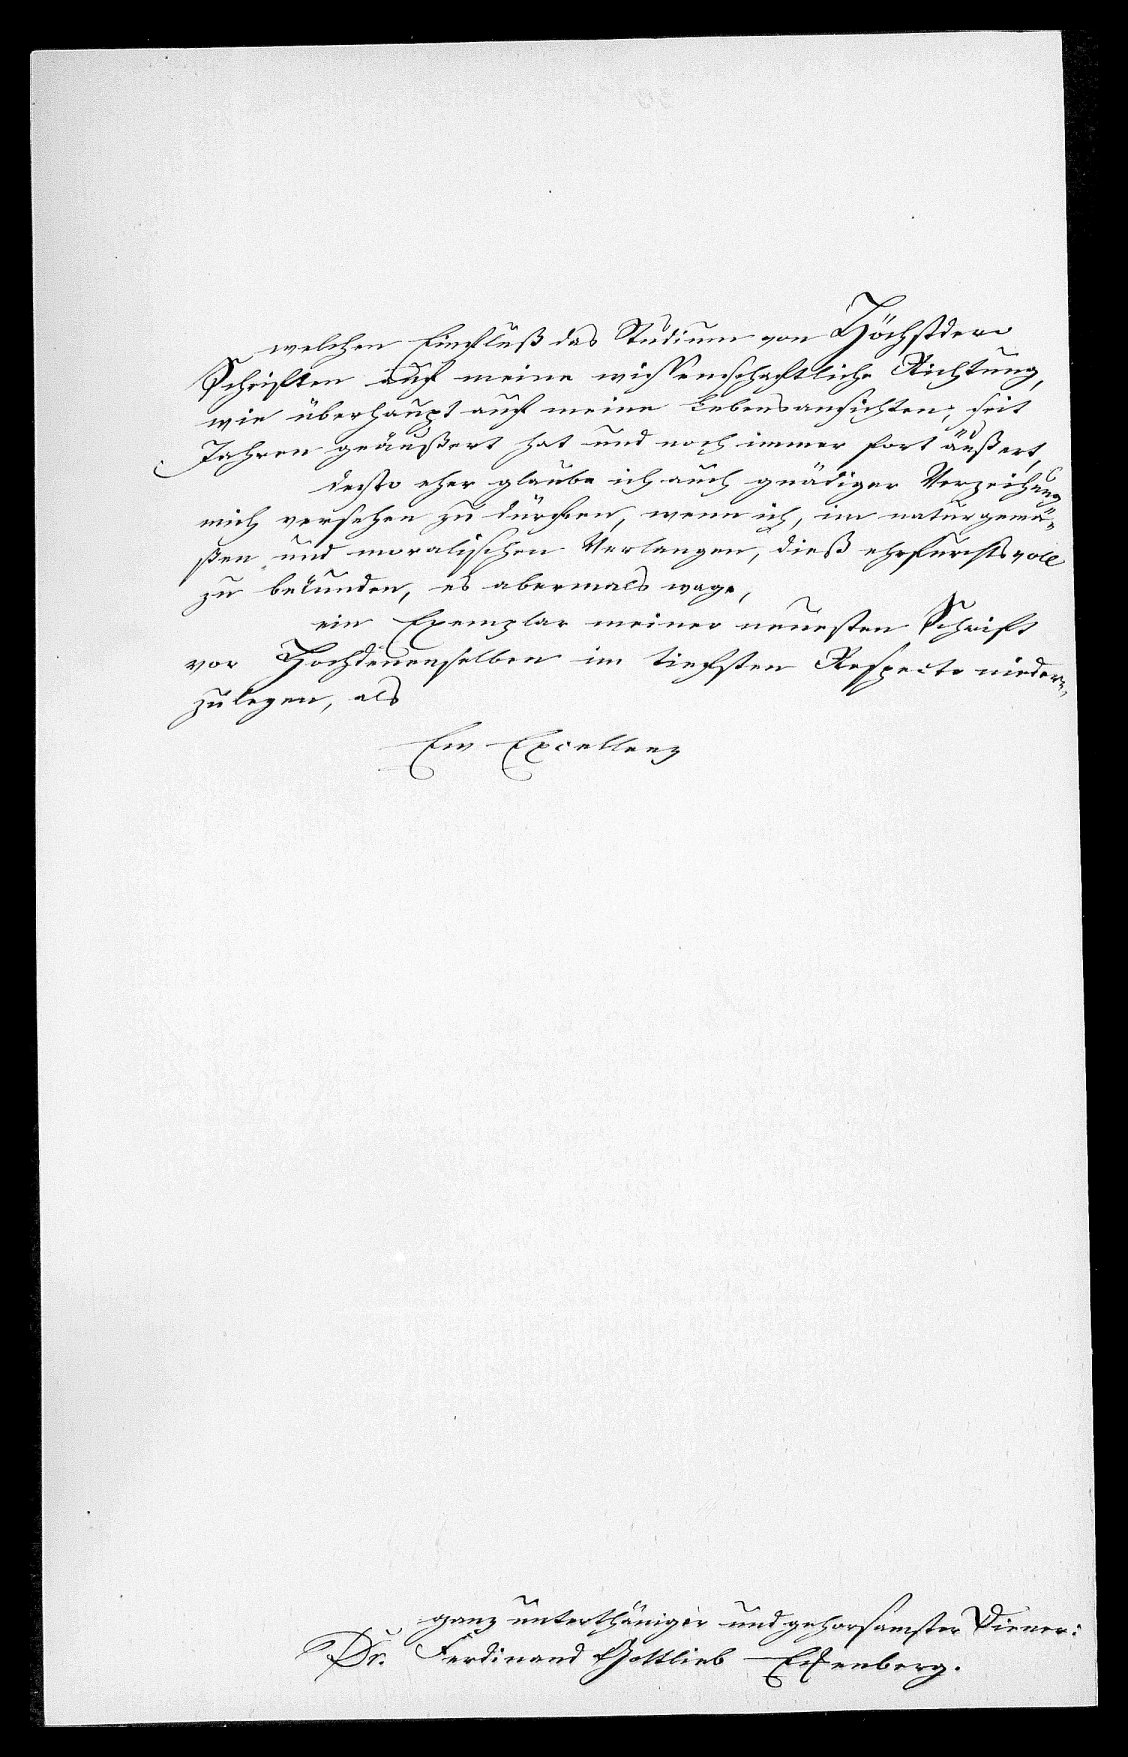 welchen Einfluß das Studium von Höchstdero
Schriften auf meine wissenschaftliche Richtung,
wie überhaupt auf meine Lebensansichten, seit
Jahren geäußert hat und noch immer fort äußert,
desto eher glaube ich auch gnädiger Verzeihung
mich versehen zu dürfen, wenn ich, im naturgemä-
ßen und moralischen Verlangen, dieß ehrfurchtsvoll
zu bekunden, es abermals wage,
ein Exemplar meiner neuesten Schrift
vor Hochdenenselben im tiefsten Respecte nieder-
zulegen, als
Ew Excellenz
ganz unterthäniger und gehorsamster Diener:
Dr. Ferdinand Gottlieb